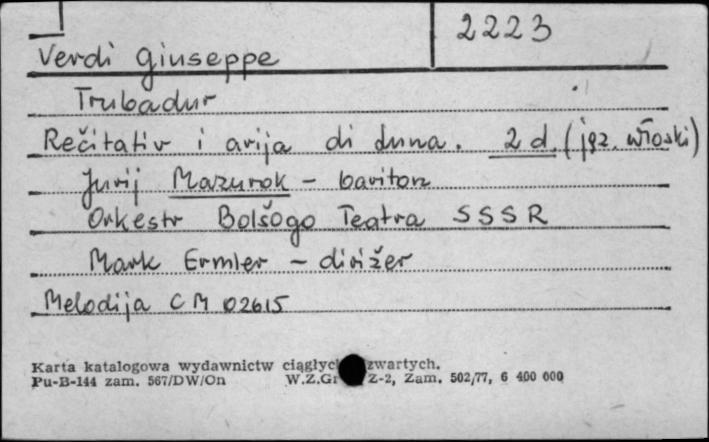 2223
Verdi Giuseppe
Trubadur
Rečitativ i arija di Luna. 2 d. (jęz. włoski)
Jurij Mazurok - bariton
Orkestr Bolšogo Teatra SSSR
Mark Ermler - dirižer
Melodija CM 02615
Karta katalogowa wydawnictw ciągłyc zwartych.
Pu-B-144 zam. 567/DW/On W.Z.Gr Z-2, Zam. 502/77, 6 400 000